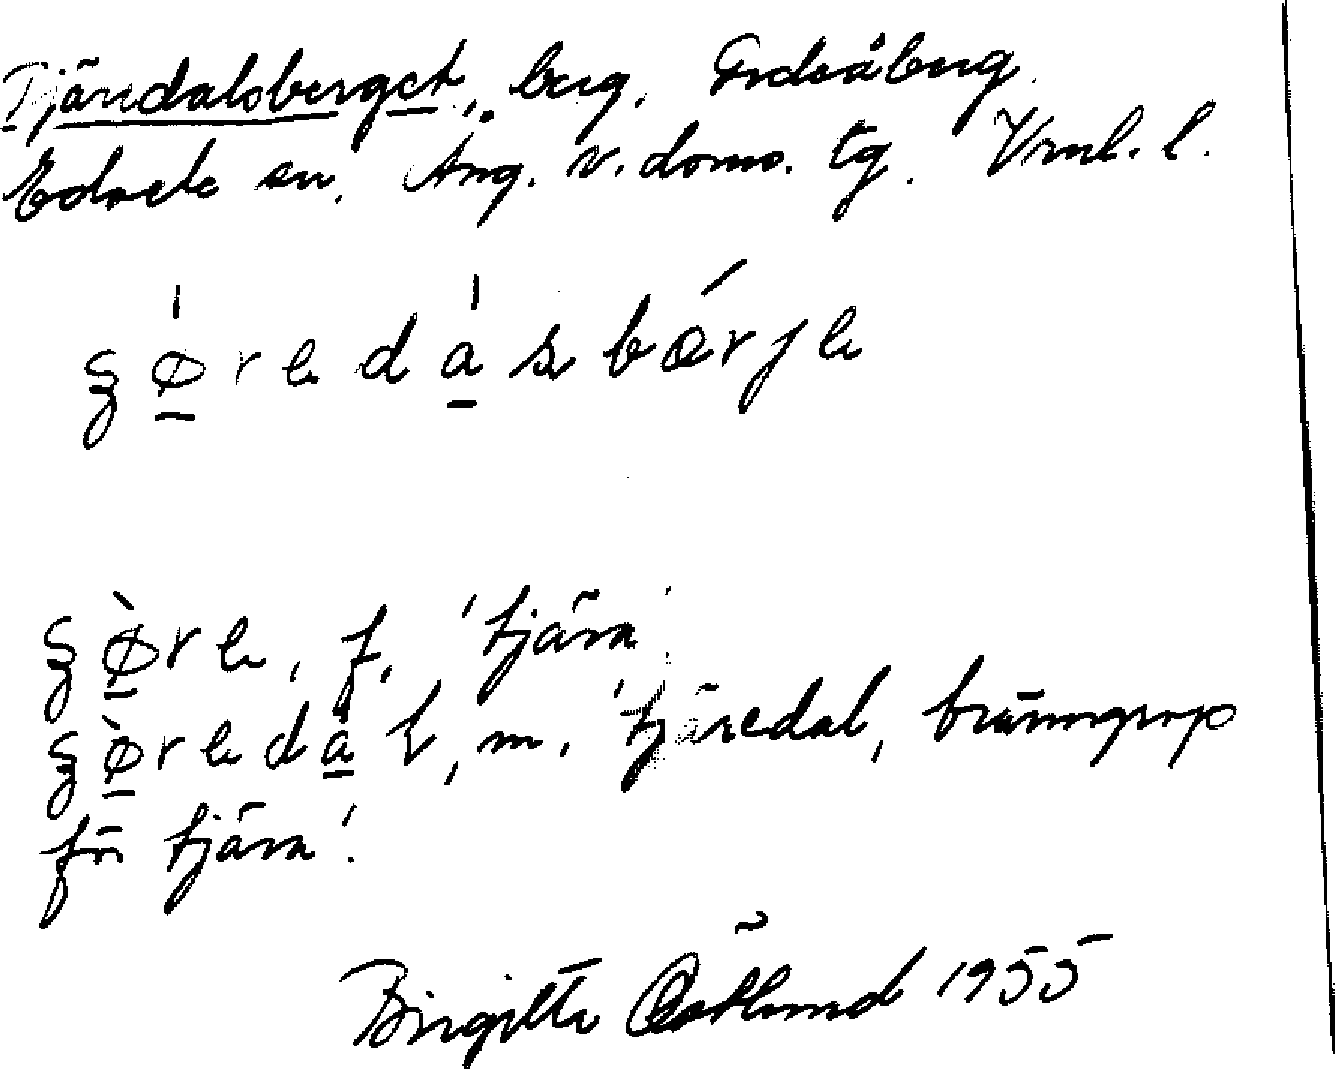 Tjäredalsberget, berg, Ordsåberg
Edsele sn. Ång. v. doms. tg. Vrnl. l.
ꞩø̱reda̱sbærje
ꞩø̱re, f, 'tjära'
ꞩø̱reda̱l, m. 'tjäredal, bränngrop
för tjära'.
Birgitta Östlund 1955